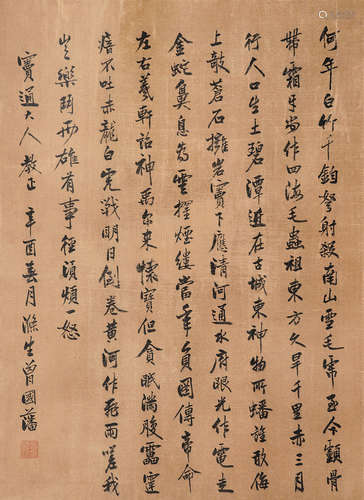 何年白竹千鈞弩射殺南山雪毛虎至今顱骨
帶霜牙尚作四海毛蟲祖東方久旱千里赤三月
行人口生土碧潭近在古城東神物所蟠誰敢侮
上欹蒼石擁岩竇下應清河通水府眼光作電走
金蛇鼻息為雲擢煙縷當年負圖傳帝命
左右羲軒詔神禹爾來懷寶但貪眠滿腹靁霆
瘖不吐赤龍白虎戰明日倒卷黃河作飛雨嗟我
豈樂鬥兩雄有事徑須煩一怒
寶通大人教正 辛酉春月滌生曾國藩